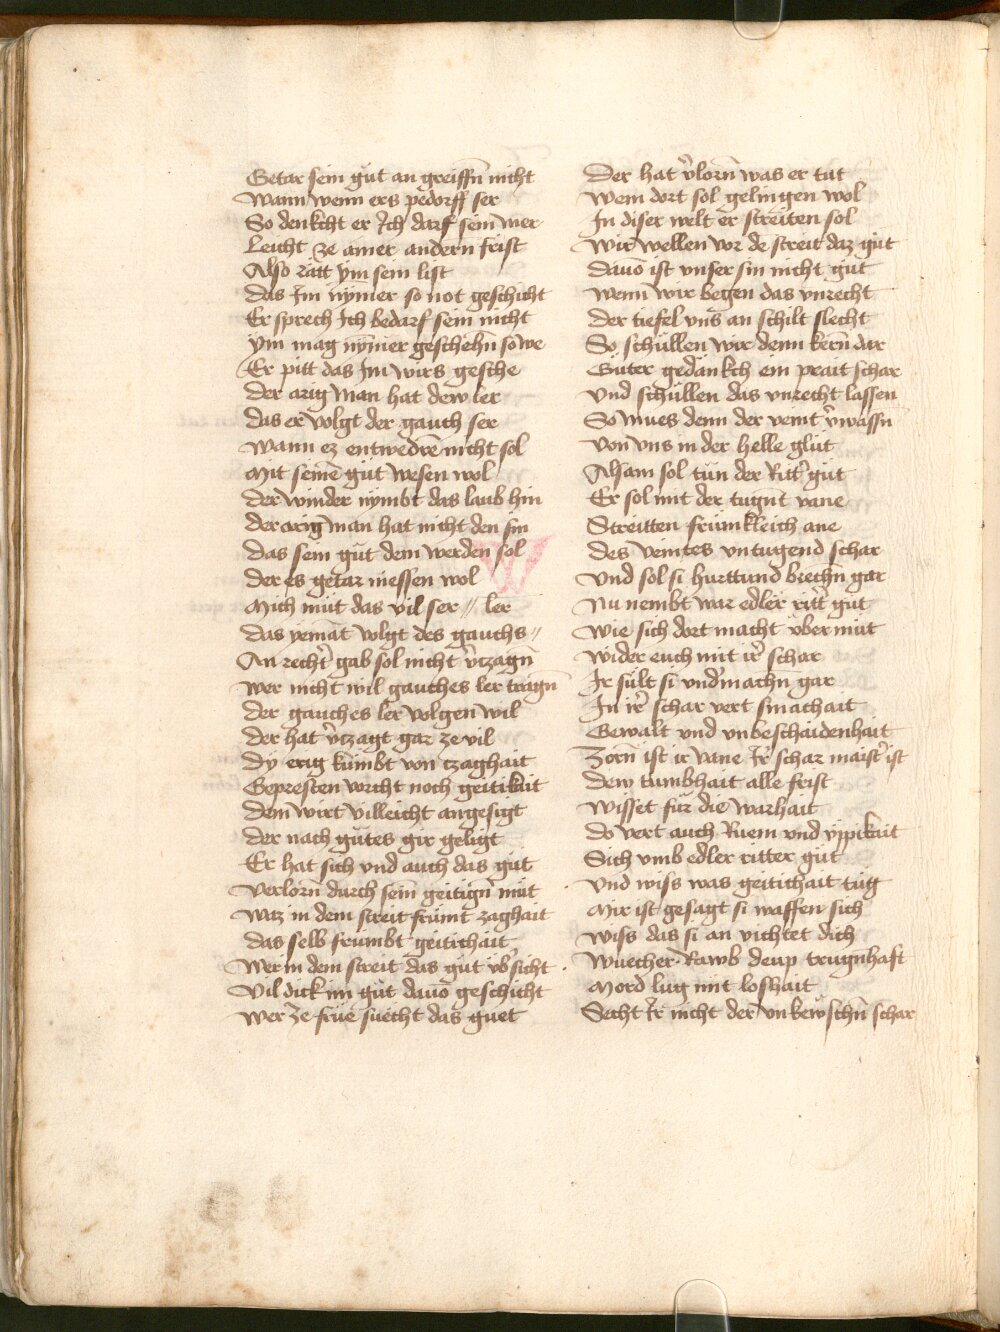 Getar sein gůt an greiffn̄ nicht
Wann wenn ers pedorff ser
So denkcht er Ich darf sein mer
Leicht ze ainer andern frist
Also ratt ym sein list
das Im nȳmer so not geschicht
Er sprech Ich bedarf sein nicht
Ym mag nȳmer geschehn̄ so we
Er pitt das Im wirs gesche
der arig man hat dew ler
das er volgt der gauch ser
Wann ez entwedrē nicht sol
Mit seinē gůt wesen wol
der winder nymbt das laub hin
der arig man hat nicht den sin
das sein gůt dem werden sol
der es getar niessen wol
Mich můt das vil ser // ler
das yemāt volgt des gauchs //
An recht̾ gab sol nicht v̾tzagn̄
wer nicht wil gauches ler tragn̄
der gauches ler volgen wil
der hat v̾tzagt gar ze vil
dy erig kůmbt von tzaghait
Gepresten wrcht noch geitikait
dem wirt villeicht angesigt
der nach gůtes gir geligt
Er hat sich vnd auch das gůt
verlorn̄ durch sein geitign̄ můt
Waz in dem streit frůmt zaghait
das selb frumbt geitichait
Wer in dem streit das gůt vb̾sicht
Vil dick im gůt dauō geschicht
wer ze frůe suecht das guet
Der hat v̾lorn̄ was er tůt
Wem dort sol gelingen wol
In diser welt er streiten sol
Wir wellen vor de streit daz gůt
dauō ist vnser sin nicht gůt
wenn wir begen das vnrecht
der tiefel vns an schilt slecht
So schullen wir denn kern̄ dar
Gůter gedankch ein prait schar
Vnd schůllen das vnrecht lassen
So mues denn der veint v̾wassn̄
von vns in der helle glůt
Alsam sol tůn der Ritt̾ gůt
Er sol mit der tugnt vane
Streitten frůmkleich ane
des veintes vntugend schar
Vnd sol si hurttund brechn̄ gar
Nu nembt war edler ritt̾ gůt
Wie sich dort macht v̈ber můt
wider euch mit ir̾ schar
Ir sůlt si vnd̾machn̄ gar
In ir̾ schar vert smachait
Gewalt vnd vnbeschaidenhait
Zorn ist ir vane Ir̾ schar maist̾ ist
dew tumbhait alle frist
wisset fůr die warhait
do vert auch Ruem vnd ýppikait
Sich vmb edler ritter gůt
Vnd wiss was geitichait tůg
Mir ist gesagt si waffen sich
wiss das si an vichtet dich
Wuecher Rawb deup trugnhaft
Mord lug mit loshait
Secht Ir nicht der vnkewschn̄ schar